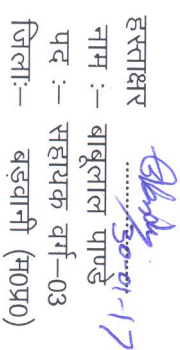 हस्ताक्षर.............
30-01-17
नाम :– बाबूलाल पाण्डे
पद :– सहायक वर्ग–03
जिला:– बड़वानी (म०प्र०)